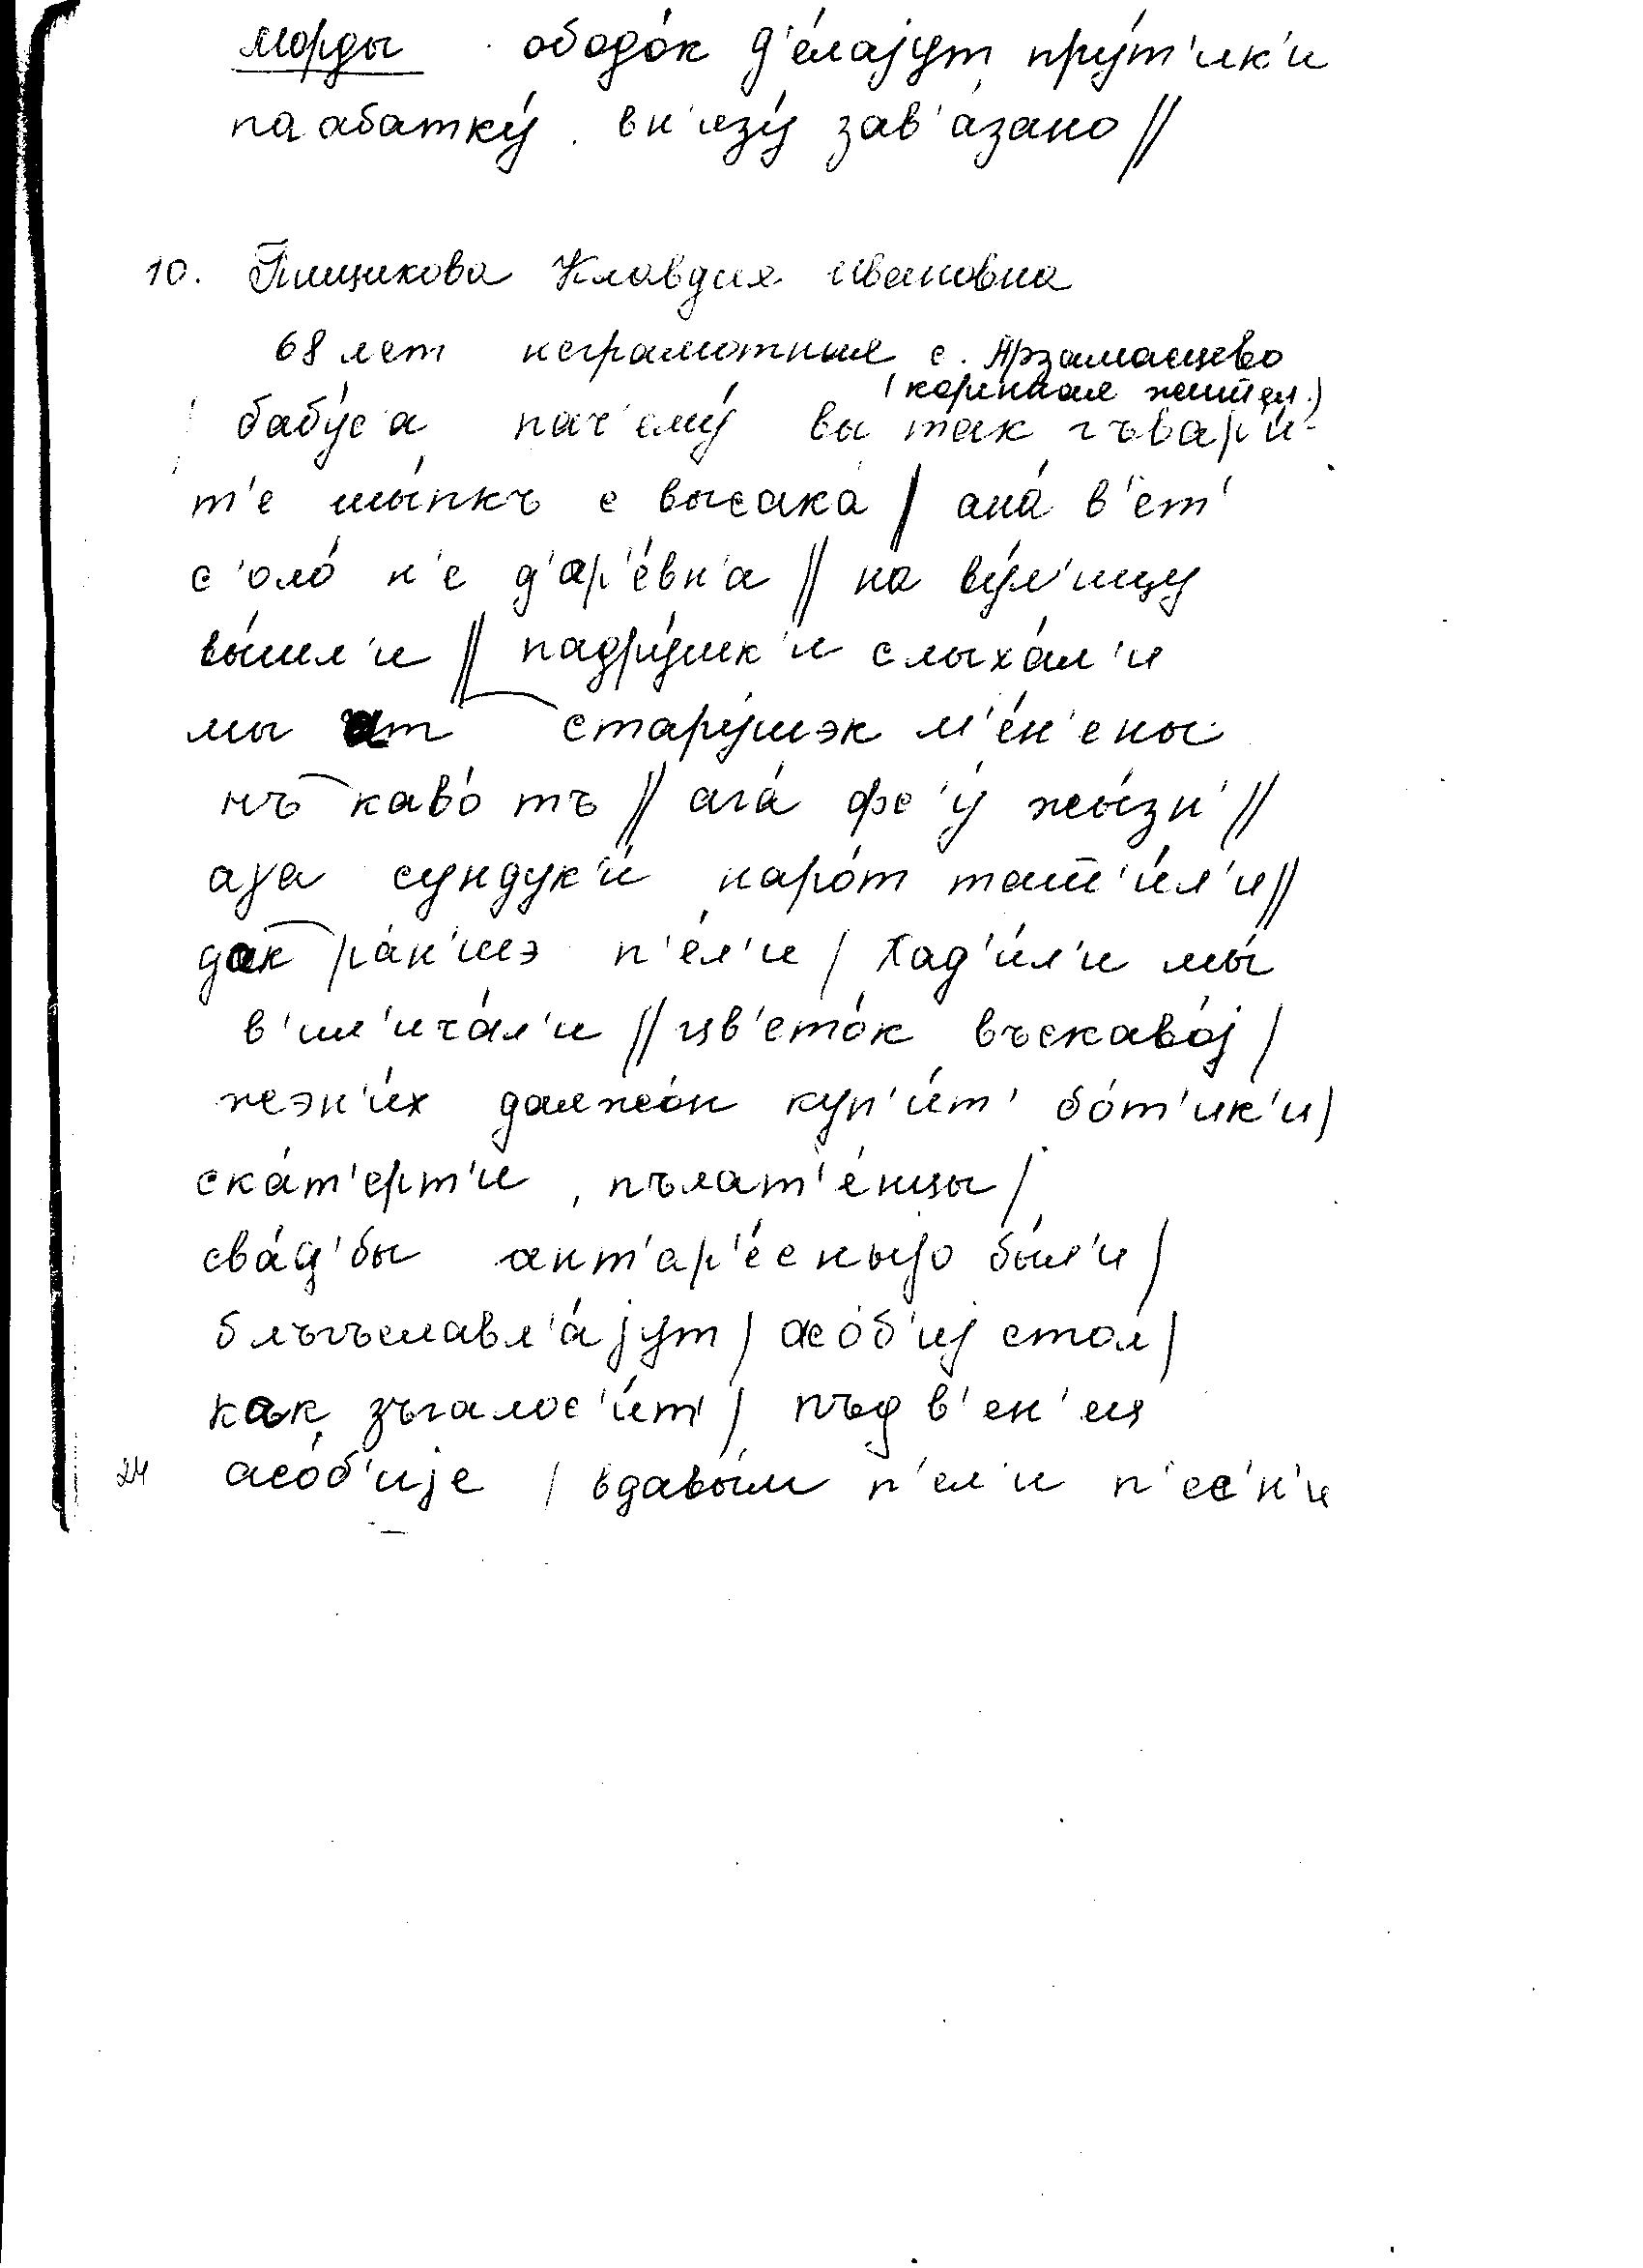 морды ободо́к д'е́лаjут пру́т'ик'и
па абатку́ вн'изу́ зав'а́зано //
10. Пищикова Клавдия Ивановна
68 лет неграмотная с. Арзамасцево
(коренная жител.)
бабу́с'а пач'ему́ вы так гъвари́-
т'е шы́пкъ с высака́ / ана́ в'ет'
с'оло́ н'е д'ар'е́вн'а // на ву́л'ицу
вы́шл'и // падру́шк'и слыха́л'и
мы ат стару́шэк м'е́н'ены
нъ каво́ тъ // ага́ фс'у́ жы́зн' //
ага сундук'и́ наро́т тащ'и́л'и //
дак ра́н'шэ п'е́л'и / хад'и́л'и мы́
в'ил'ича́л'и // цв'ето́к въскаво́j /
жэн'и́х должо́н куп'и́т' бо́т'ик'и /
ска́т'ерт'и, пълат'е́нцы /
сва́д'бы ант'ар'е́сныjо бы́л'и /
блъгъславл'а́jут / асо́б'иj стол /
как зъгалос'и́т / пъд в'ен'ец
24 асо́б'иjе / вдавы́м п'ел'и п'ес'н'и